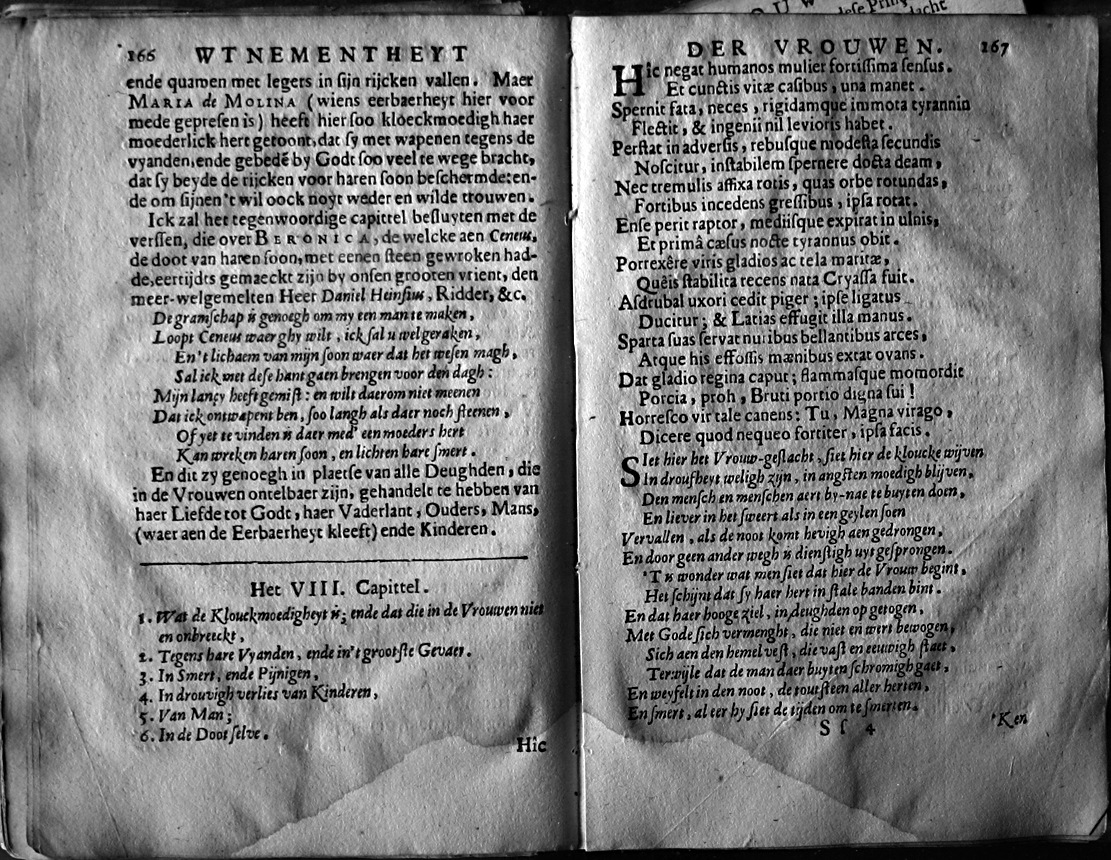 166 WTNEMENTHEYT
ende quamen met legers in sijn rijcken vallen. Maer
MARIA de MOLINA (wiens eerbaerheyt hier voor
mede gepresen is) heeft hier soo kloeckmoedigh haer
moederlick hert getoont, dat sy met wapenen tegens de
vyanden, ende gebedē by Godt soo veel te wege bracht,
dat sy beyde de rijcken voor haren soon beschermde: en-
de om sijnen't wil oock noyt weder en wilde trouwen.
Ick zal het tegenwoordige capittel besluyten met de
verssen, die over BERONICA, de welcke aen Ceneus,
de doot van haren soon, met eenen steen gewroken had-
de, eertijdts gemaeckt zijn by onsen grooten vrient, den
meer-welgemelten Heer Daniel Heinsius, Ridder, &c.
De gramschap is genoegh om my een man te maken,
Loopt Ceneus waer ghy wilt, ick sal u wel geraken,
En't lichaem van mijn soon waer dat het wesen magh,
Sal ick met dese hant gaen brengen voor den dagh:
Mijn lancy heeft gemist: en wilt daerom niet meenen
Dat ick ontwapent ben, soo langh als daer noch steenen,
Of yet te vinden is daer med' een moeders hert
Kan wreken haren soon, en lichten hare smert.
En dit zy genoegh in plaetse van alle Deughden, die
in de Vrouwen ontelbaer zijn, gehandelt te hebben van
haer Liefde tot Godt, haer Vaderlant, Ouders, Mans,
(waer aen de Eerbaerheyt kleeft) ende Kinderen.
Het VIII. Capittel.
1. Wat de Klouckmoedigheyt is; ende dat die in de Vrouwen niet
en onbreeckt,
2. Tegens hare Vyanden, ende in't grootste Gevaer.
3. In Smert, ende Pijnigen,
4. In drouvigh verlies van Kinderen,
5. Van Man;
6. In de Doot selve.
Hic
DER VROUWEN. 167
Hic negat humanos mulier fortissima sensus.
Et cunctis vitæ casibus, una manet.
Spernit fata, neces, rigidamque immota tyrannin
Flectit, & ingenii nil levioris habet.
Perstat in adversis, rebusque modesta secundis
Noscitur, instabilem spernere docta deam,
Nec tremulis affixa rotis, quas orbe rotundas,
Fortibus incedens gressibus, ipsa rotat.
Ense perit raptor, mediisque expirat in ulnis,
Et primâ cæsus nocte tyrannus obit.
Porrexêre viris gladios ac tela maritæ,
Quêis stabilita recens nata Cryassa fuit.
Asdrubal uxori cedit piger; ipse ligatus
Ducitur; & Latias effugit illa manus.
Sparta suas servat nuribus bellantibus arces,
Atque his effossis mænibus extat ovans.
Dat gladio regina caput; flammasque momordit
Porcia, proh, Bruti portio digna sui!
Horresco vir tale canens: Tu, Magna virago,
Dicere quod nequeo fortiter, ipsa facis.
Siet hier het Vrouw-geslacht, siet hier de kloucke wijven
In droufheyt weligh zijn, in angsten moedigh blijven,
Den mensch en menschen aert by-nae te buyten doen,
En liever in het sweert als in een geylen soen
Vervallen, als de noot komt hevigh aengedrongen,
En door geen ander wegh is dienstigh uytgesprongen.
'T is wonder wat men siet dat hier de Vrouw begint,
Het schijnt dat sy haer hert in stale banden bint.
En dat haer hooge ziel, in deughden op getogen,
Met Gode sich vermenght, die niet en wert bewogen,
Sich aen den hemel vest, die vast en eeuwigh staet,
Terwijle dat de man daer buyten schromigh gaet,
En weyfelt in den noot, de toutsteen aller herten,
En smert, al eer hy siet de tijden om te smerten.
Sf 4
'Ken